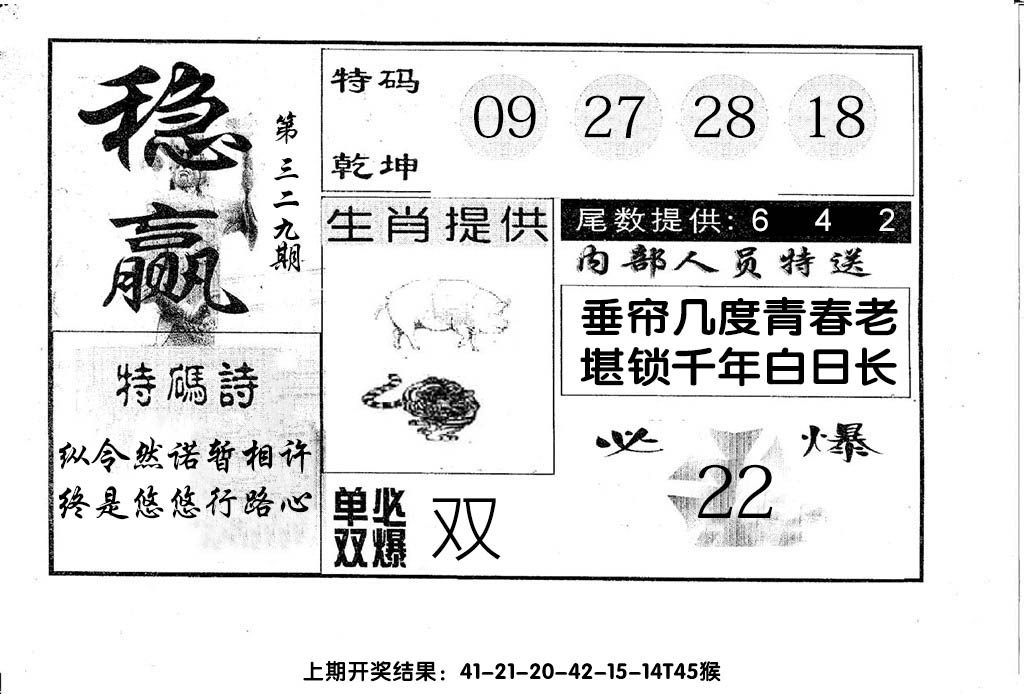 稳赢
第三二九期
特码
乾坤
09 27 28 18
生肖提供
尾数提供: 6 4 2
内部人员特送
垂帘几度青春老
堪锁千年白日长
特碼詩
纵令然诺暂相许
终是悠悠行路心
单双
必爆
双
必爆
22
上期开奖结果：41-21-20-42-15-14T45猴